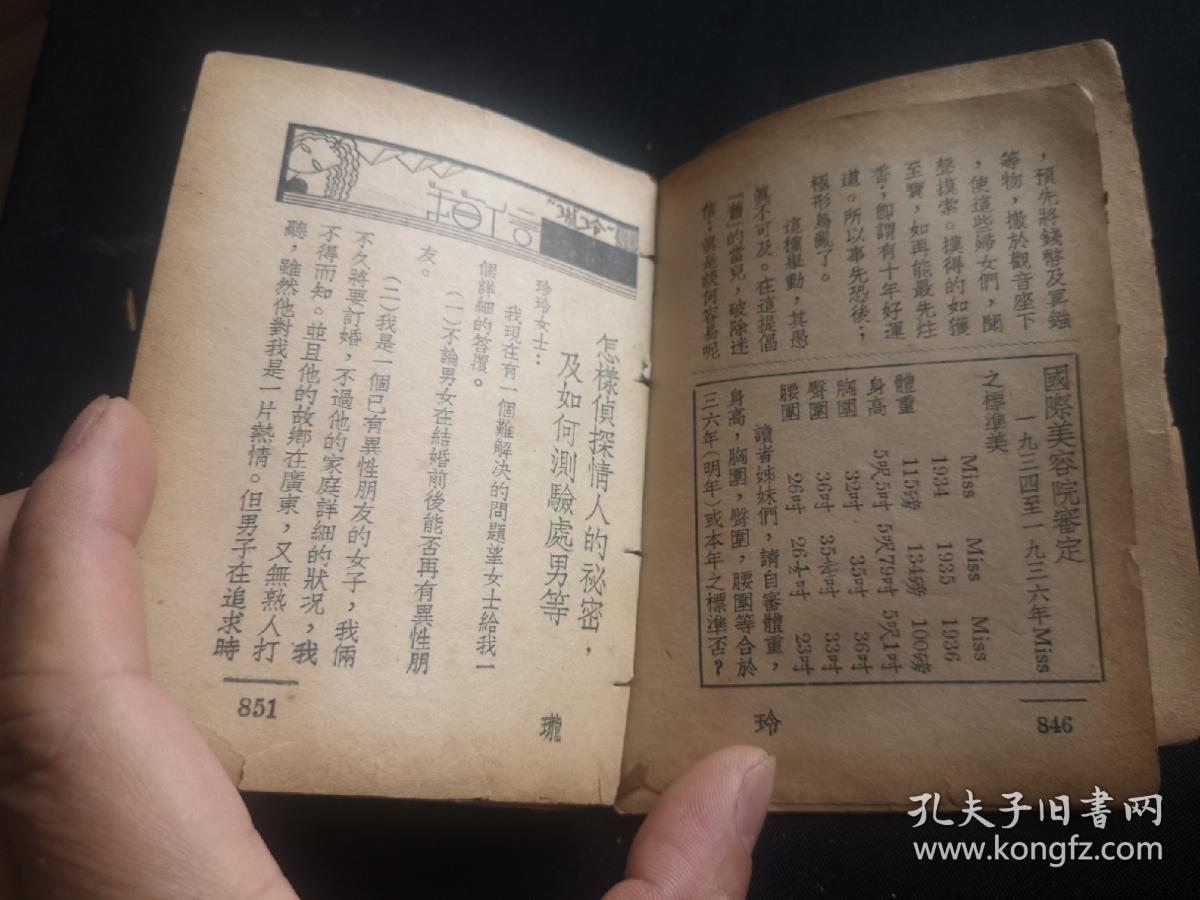 ，預先將錢幣及冥鏹
等物，撒於觀音座下
，使這些婦女們，聞
聲摸索。摸得的如獲
至寶，如再能最先炷
香；卽謂有十年好運
道。所以事先恐後；
極形鳥亂了。
這種舉動，其愚
眞不可及。在這提倡
的當兒，破除迷
信；眞是談何容易呢
國際美容院審定
一九三四至一九三六年Miss
之標準美
Miss 1934 Miss 1935 Miss 1936
體重 115磅 134磅 100磅
身高 5呎5吋 5呎79吋 5呎1吋
胸圍 32吋 35吋 36吋
臀圍 36吋 35½吋 33吋
腰圍 26吋 26¼吋 23吋
讀者姊妹們，請自審體重，
身高，胸圍，臀圍，腰圍等合於
三六年（明年）或本年之標準否？
玲
846
"玲瓏"
信箱
怎樣偵探情人的祕密，
及如何測驗處男等
珍玲女士：
我現在有一個難解決的問題望女士給我一
個詳細的答覆。
（一）不論男女在結婚前後能否再有異性朋
友。
（二）我是一個已有異性朋友的女子，我倆
不久將要訂婚，不過他的家庭詳細的狀況，我
不得而知。並且他的故鄉在廣東，又無熟人打
聽，雖然他對我是一片熱情。但男子在追求時
瓏
851
孔夫子旧书网
www.kongfz.com